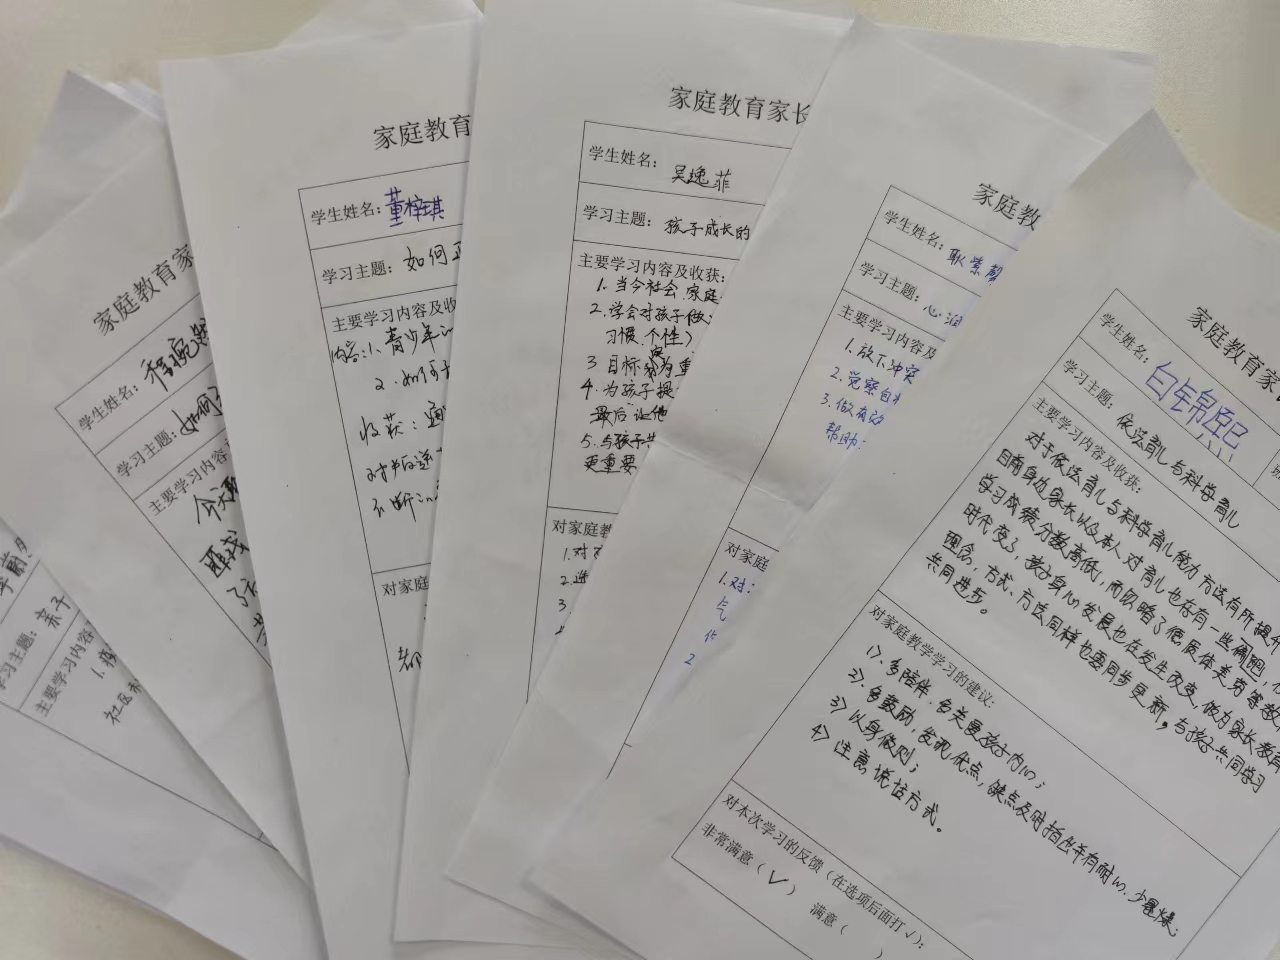 家庭教育家
学生姓名：
学习主题：如何
主要学习内容
今天
学习主题：亲子
主要学习内容
1.
社区
家庭教育
学生姓名：董梓琪
学习主题：如何正
主要学习内容及收
内容：1、青少年
2、如何
收获：通
对叛逆
不断
对家庭
家庭教育家长
学生姓名：吴逸菲
学习主题：孩子成长的
主要学习内容及收获：
1. 当今社会 家庭
2. 学会对孩子做
习惯、个性）
3 目标 为重
4. 为孩子提
最后让他
5. 与孩子共
更重要
对家庭教
1. 对
2. 进
3
家庭教
学生姓名：耿紫馨
学习主题：心润
主要学习内容及
1. 放下冲突
2. 觉察自
3. 做有效
帮助
对家庭
1. 对：
气
2
家庭教育家
学生姓名：白锦熙
班
学习主题：依法育儿与科学育儿
主要学习内容及收获：
对于依法育儿与科学育儿能力方法有所提升
目前身边家长以及本人对育儿也存有一些
学习成绩分数高低，而忽略了德质体美劳等教
时代变了，孩子身心发展也在发生改变，做为家长教育
理念，方式、方法同样也要同步更新，与孩子共同学习
共同进步。
对家庭教学学习的建议：
1）. 多陪伴、多关爱孩子内心；
2）. 多鼓励，发现优点，缺点及时指出并有耐心、少暴燥；
3）以身做则；
4）注意说话方式。
对本次学习的反馈（在选项后面打√）：
非常满意（√） 满意（ ）